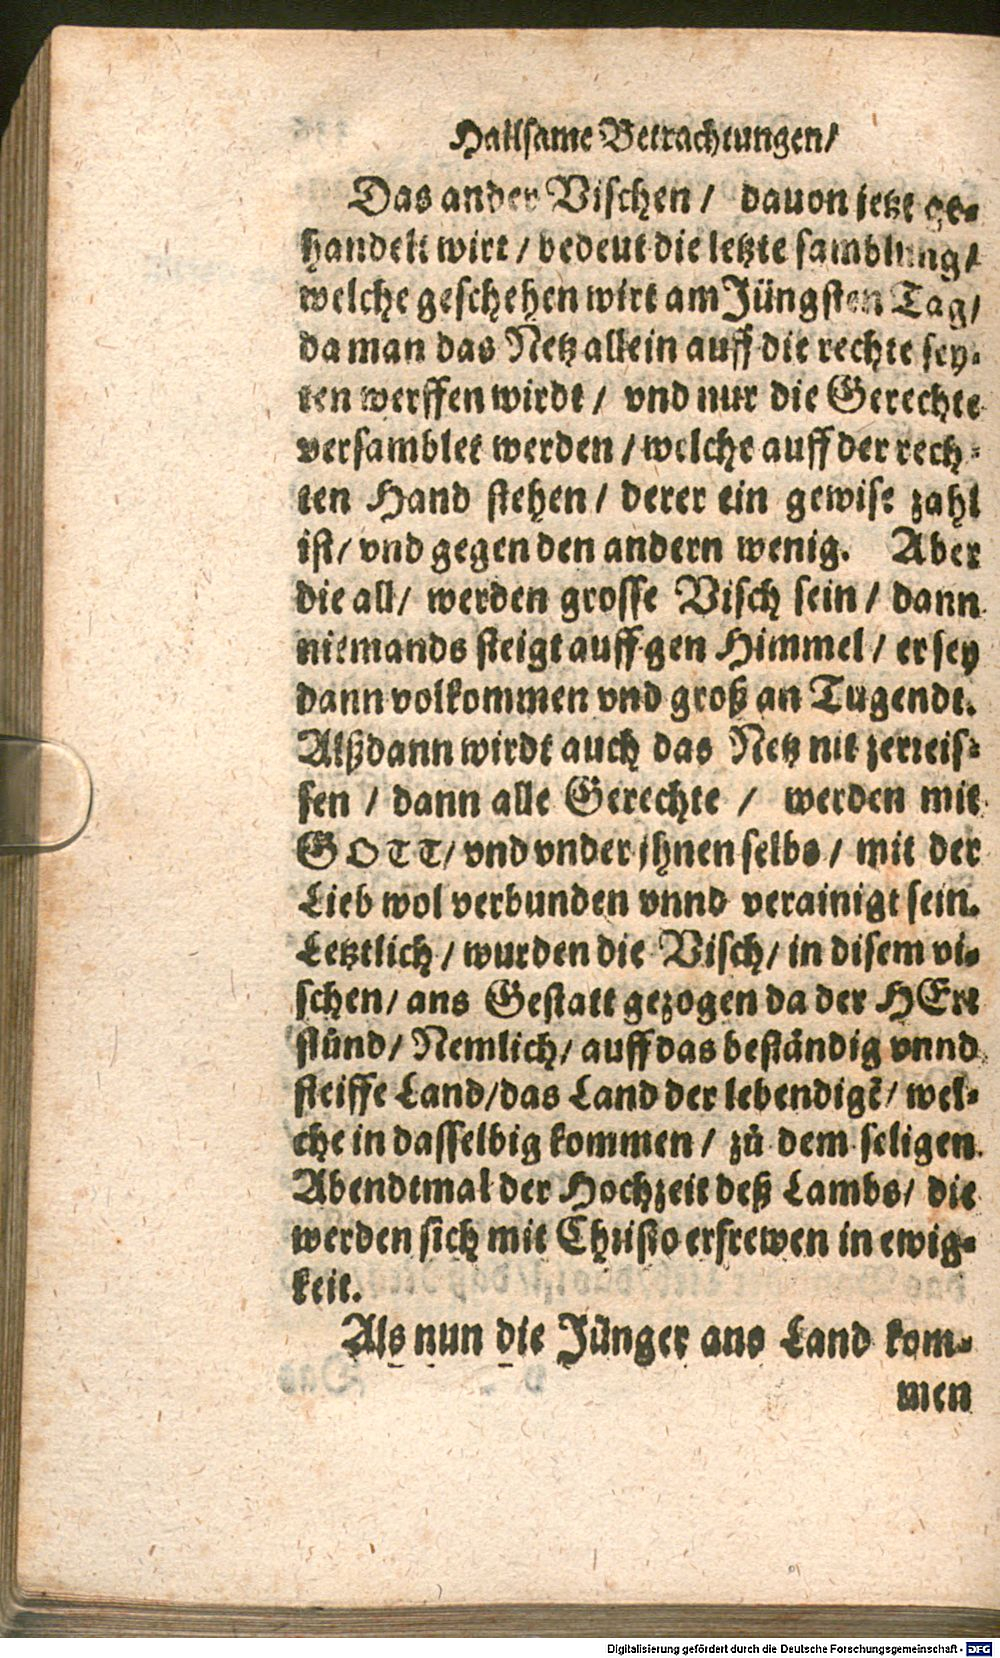 Hailsame Betrachtungen/
Das ander Vischen / dauon jetzt ge-
handelt wirt / bedeut die letzte samblung/
welche geschehen wirt am Jüngsten Tag/
da man das Netz allein auff die rechte sey-
ten werffen wirdt / vnd nur die Gerechte
versamblet werden / welche auff der rech-
ten Hand stehen / derer ein gewise zahl
ist/ vnd gegen den andern wenig. Aber
die all/ werden grosse Visch sein / dann
niemands steigt auff gen Himmel / er sey
dann volkommen vnd groß an Tugendt.
Alßdann wirdt auch das Netz nit zerreis-
sen / dann alle Gerechte / werden mit
GOTT/ vnd vnder jhnen selbs / mit der
Lieb wol verbunden vnnd verainigt sein.
Letztlich / wurden die Visch/ in disem vi-
schen/ ans Gestatt gezogen da der HErr
stůnd/ Nemlich/ auff das beständig vnnd
steiffe Land/das Land der lebendigē/ wel-
che in dasselbig kommen / zů dem seligen
Abendtmal der Hochzeit deß Lambs/ die
werden sich mit Christo erfrewen in ewig-
keit.
Als nun die Jünger ans Land kom-
men
Digitalisierung gefördert durch die Deutsche Forschungsgemeinschaft - DFG